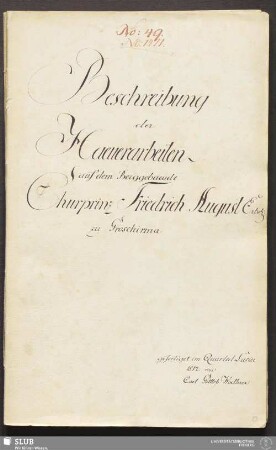 No: 49.
Beschreibung
der
Haeuerarbeiten
auf dem Berggebaeude
Churprinz Friedrich August Erbst.
zu Groschirma
gefertiget im Quartal Luciae
1812 von
Carl Gottlob
SLUB
Wir führen Wissen.